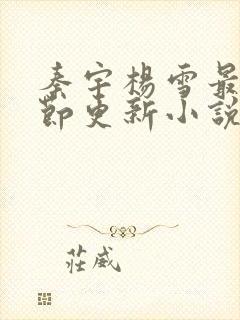 秦宇楊雪最
節更新小說
莊威